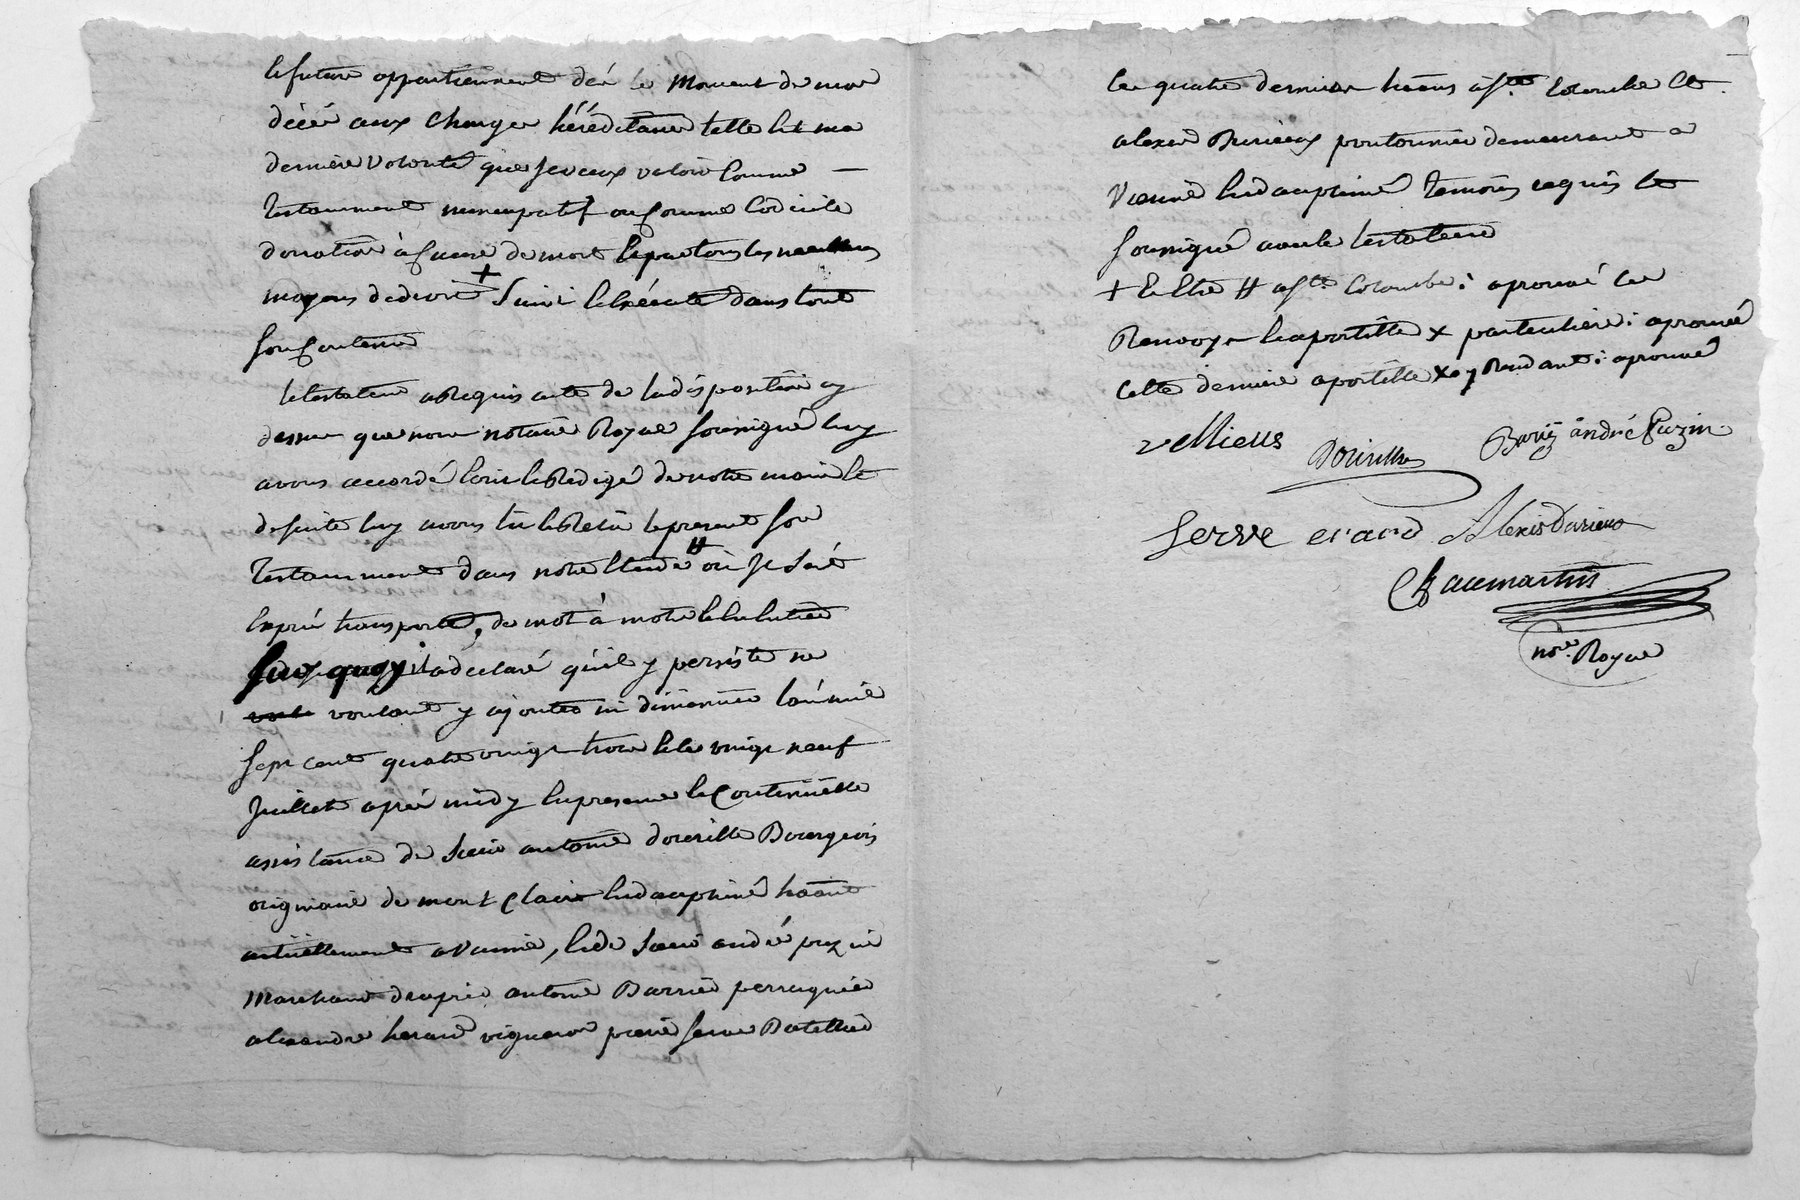 et future appartiennent dès le Moment de mon
décés aux Charges héréditaires telle est ma
derniere Volonté que je veux valoir Comme —
testamment nuncupatif ou Comme Codicile
donnation à Cause de mort et par tous les meilleurs
moyens de droit + Suivi et Exécuté dans tout
son Contenu
le testateur a Requis acte de la disposition cy
dessus que nous notaire Royal soussigné luy
avons accordé l'ecrit et Rédigé de notre main et
de suite luy avons lu et Relu le present son
testamment dans notre Etude # où Je Suis
Exprés transporté, de mot à mot et l'a entendu
Sur quoy il a declaré qu'il y persiste ne
voulant y ajouter ni diminuer l'an mil
Sept cent quatre vingt trois et le vingt neuf
Juillet après midy En presence et Continuelle
assistance de Sieur antoine dourille Bourgeois
originaire de mont Clair En dauphiné ha͞ant
actuellement a Vienne, et de Sieur andré puzin
Marchand drapier antoine Barrier perruquier
alexandre herard vigneron pierre Serve Batellier
les quatre derniers ha͞ans à Ste Colombe Et
alexis Durieux pontonnier demeurant a
Vienne En dauphiné temoins requis Et
soussignés avec le testateur
+ Et Etre # a Ste Colombe : aprouvé les
Renvoys En apostille x particuliere : aprouvé
Cette derniere apostille x cy Pendant : aprouvé
vellieus
Dourille
Bariẽ andré Puzin
Serve erard Alexis Durieux
Chaumartin
nore Royal